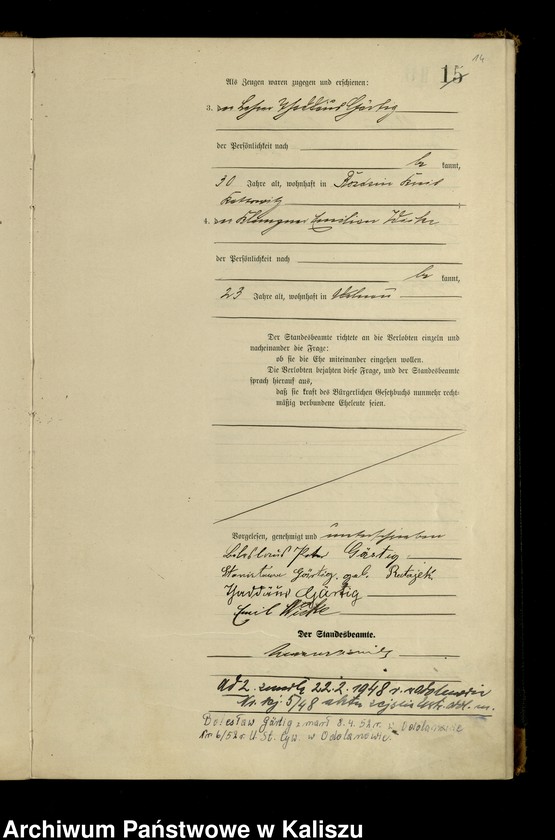 14
15
Als Zeugen waren zugegen und erschienen:
3. Lehrer Thaddäus Gärtig
der Persönlichkeit nach
be kannt,
30 Jahre alt, wohnhaft in Kreis
Kattowitz
4. Klempner Emilian
der Persönlichkeit nach
be kannt,
23 Jahre alt, wohnhaft in
Der Standesbeamte richtete an die Verlobten einzeln und
nacheinander die Frage:
ob sie die Ehe miteinander eingehen wollen.
Die Verlobten bejahten diese Frage, und der Standesbeamte
sprach hierauf aus,
daß sie kraft des Bürgerlichen Gesetzbuchs nunmehr recht-
mäßig verbundene Eheleute seien.
Vorgelesen, genehmigt und unterschrieben
Boleslaus Peter Gärtig
Stanislawa Gärtig geb. Ratajek
Thaddäus Gärtig
Emil
Der Standesbeamte.
Ad 2. zmarła 22.2.1948 r. w Odolanowie
Nr. 5/48 aktu zejścia
Bolesław Gärtig zmarł 8.4.52 r. w Odolanowie
Nr 6/52 r. U. St. Cyw. w Odolanowie.
Archiwum Państwowe w Kaliszu